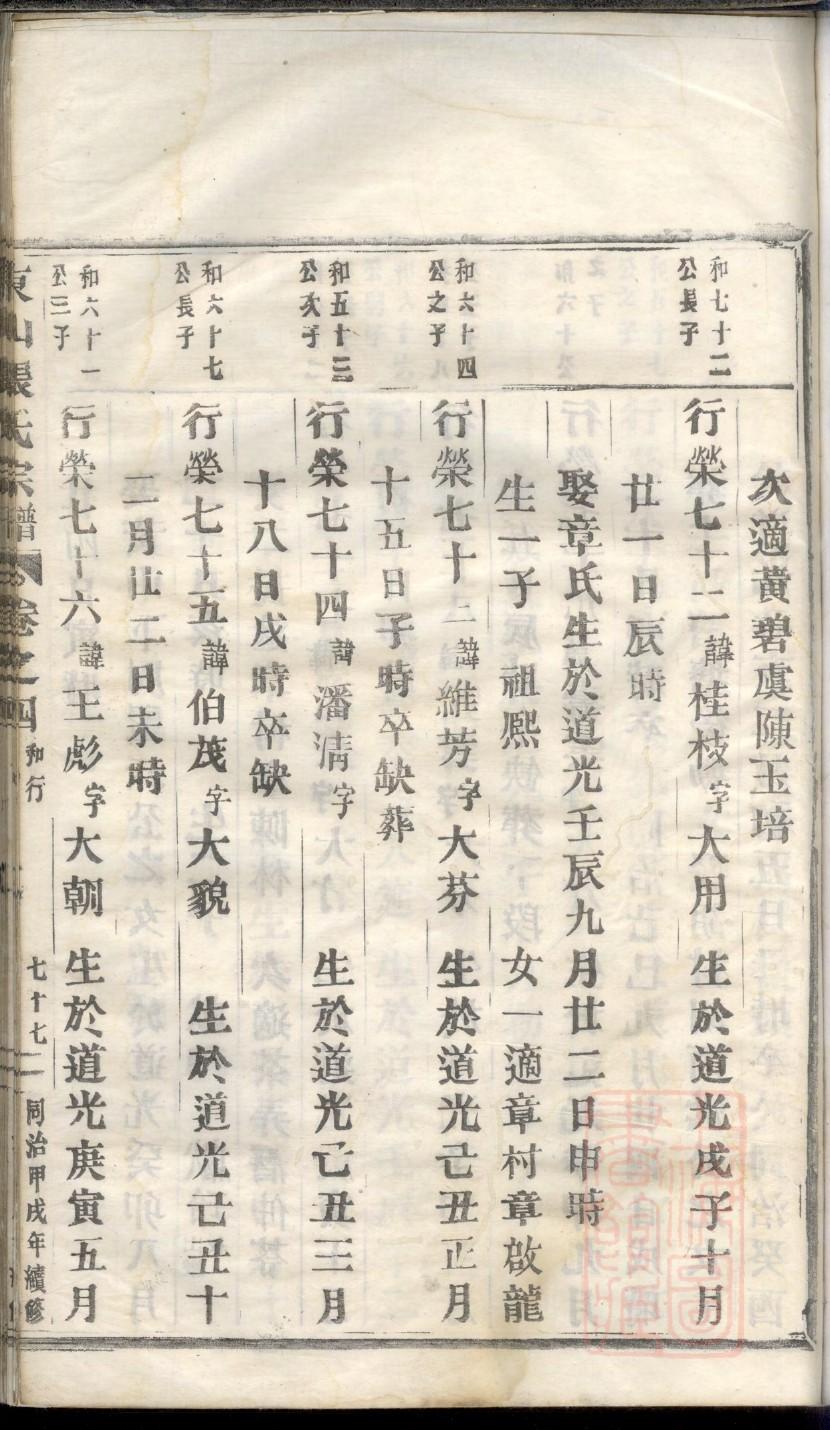 次適黄碧虞陳玉培
和七十二
公長子
行榮七十二諱桂枝字大用 生於道光戊子十月
廿一日辰時
娶章氏生於道光壬辰九月廿二日申時
生一子 祖熙 女一適章村章啟龍
和六十四
公之子
行榮七十三諱維芳字大芬 生於道光己丑正月
十五日子時卒缺葬
和五十三
公次子
行榮七十四諱潘清字 生於道光己丑三月
十八日戌時卒缺
和六十七
公長子
行榮七十五諱伯茂字大貌 生於道光己丑十
二月廿二日未時
和六十一
公三子
行榮七十六諱王彪字大朝 生於道光庚寅五月
東山張氏宗譜 卷之四 和行 七十七 同治甲戌年續修